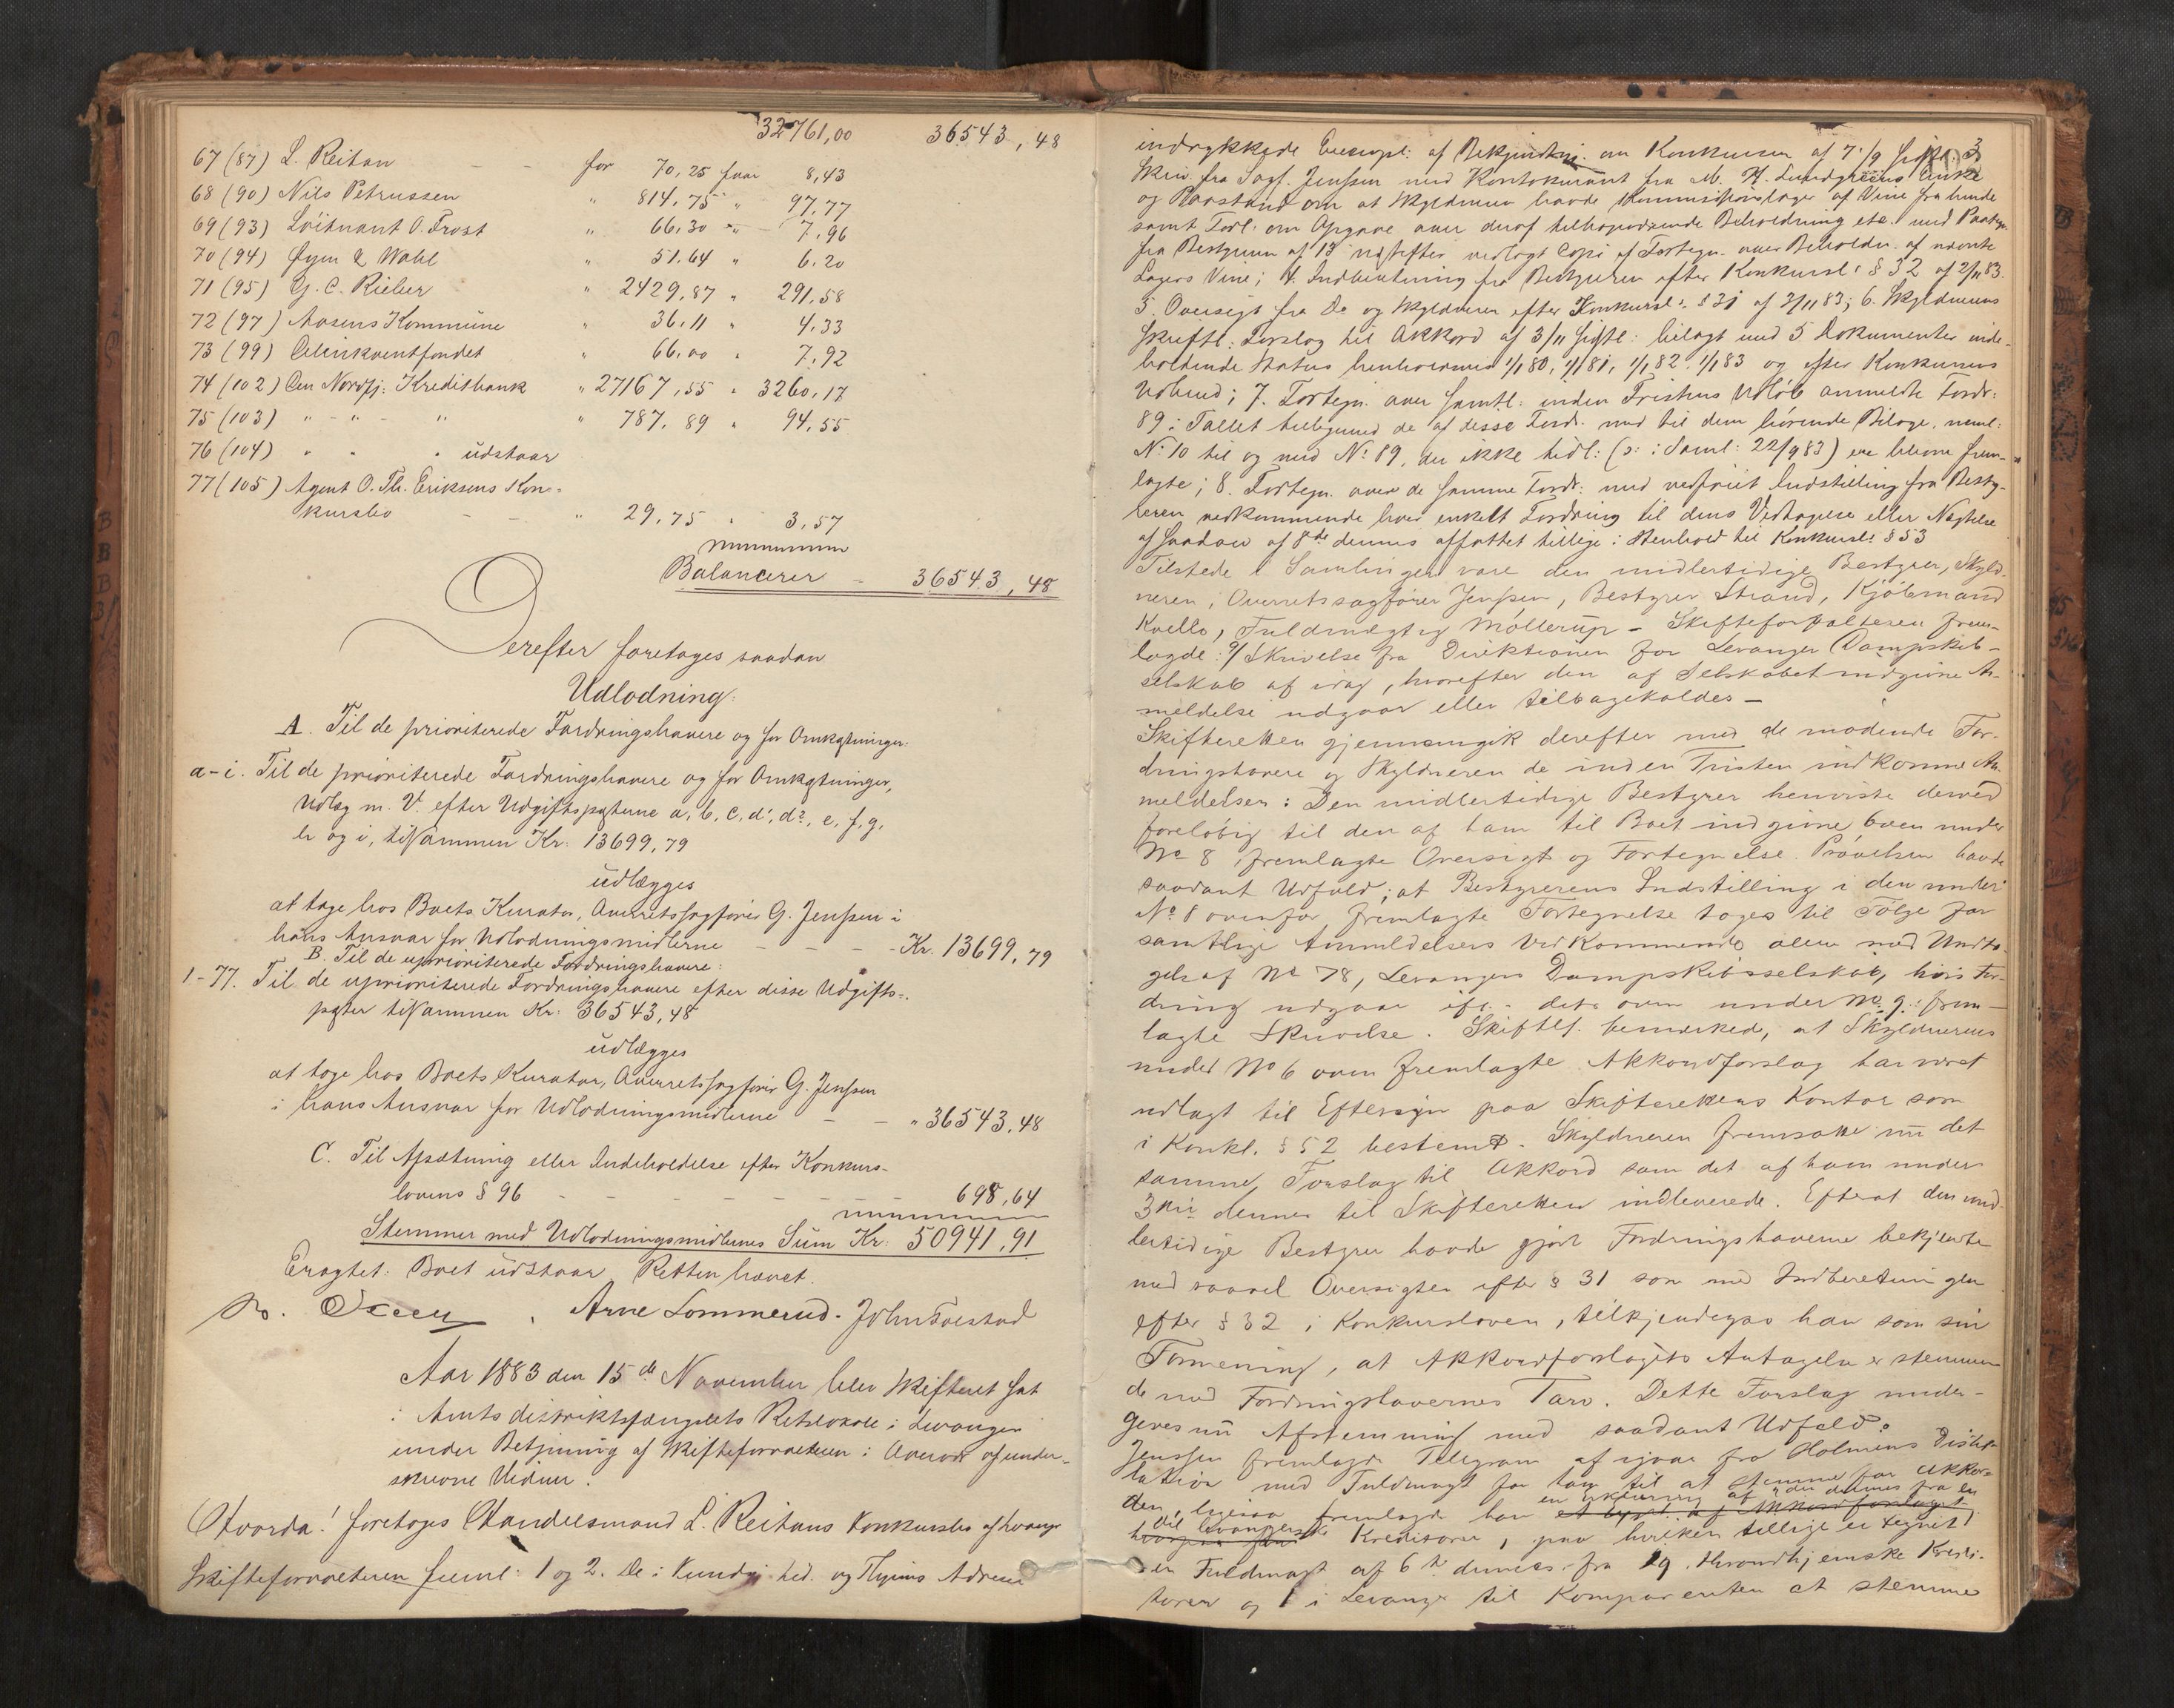 32761,00 36543,48
67 (87) L. Reitan - - for 70,25 faar 8,43
68 (90) Nils Petrussen " 814,75 " 97,77
69 (93) Löitnant O. Frost " 66,30 " 7,96
70 (94) Øyen & Wahl " 51,64 " 6,20
71 (95) G. C. Rieber " 2429,87 " 291,58
72 (97) Aasens Kommune " 36,11 " 4,33
73 (99) Delinkventfondet " 66,00 " 7,92
74 (102) Den Nordfj: Kreditbank " 27167,55 " 3260,17
75 (103) " - " - " " 787,89 " 94,55
76 (104) " " " udstaar
77 (105) Agent O. Th. Eriksens Kon-
kursbo - - " 29,75 " 3,57
Balancerer - 36543,48
Derefter foretages saadan
Udlodning:
A. Til de prioriterede Fordringshavere og for Omkostninger:
a-i. Til de prioriterede Fordringshavere og for Omkostninger,
Udlæg m. V. efter Udgiftsposterne a, b, c, d¹, d², e, f, g,
h og i, tilsammen Kr: 13699,79
udlægges
at tage hos Boets Kurator, Overretssagfører G. Jenssen i
hans Ansvar for Udlodningsmidlerne - - - - Kr. 13699,79
B. Til de uprioriterede Fordringshavere:
1-77. Til de uprioriterede Fordringshavere efter disse Udgifts-
poster tilsammen Kr: 36543,48
udlægges
at tage hos Boets Kurator, Overretssagfører G. Jenssen
i hans Ansvar for Udlodningsmidlerne - - " 36543,48
C. Til Afsætning eller Indeholdelse efter Konkurs-
lovens § 96 - - - - - - - 698,64
Stemmer med Udlodningsmidlernes Sum Kr: 50941,91
Eragtet: Boet udstaar Retten hævet.
Arne Sommerud. John Forstad
Aar 1883 den 15de November blev Skifteret sat
i Amtsdistriktsfængslets Retslokale i Levanger
under Betjening af Skifteforvalteren i Overvær af under-
skrevne Vidner.
Hvorda! foretoges Handelsmand L. Reitans Konkursbo af hvorpaa
Skifteforvalteren freml: 1 og 2. De i Kundgj. tid. og Avisens Adresse
indrykkede Exempl: af Bekjendtgj. om Konkursen af 7/9 sidstl. 3
Skriv. fra Sagf. Jenssen med Kontokurant fra M. H. Lundgreens Enke
og Paastand om at Skyldneren havde Kommissionslager af Vine fra hende
samt Forl. om Opgave over deraf tilbageværende Beholdning etc. med Paategn.
fra Bestyreren af 13 vedlagt Copi af Fortegn. over Beholdn. af nævnte
Lagers Vine; 4. Indberetning fra Bestyreren efter Konkursl: § 32 af 2/11 83.
5. Oversigt fra Do og Skyldneren efter Konkursl: § 31 af 2/11 83; 6. Skyldnerens
skriftl. Forslag til Akkord af 3/11 sidstl: bilagt med 5 Dokumenter inde-
holdende Status henholdsvis 1/1 80, 1/1 81, 1/1 82, 1/1 83 og efter Konkursens
Udbrud; 7. Fortegn. over samtl: inden Fristens Udløb anmeldte Fordr:
89 i Tallet tilligemed de af disse Fordr. med til dem hørende Bilage, neml:
No 10 til og med No 89, der ikke tidl: (i Saml: 22/9 83) ere blevne frem-
lagte; 8. Fortegn. over de samme Fordr: med vedføiet Indstilling fra Besty-
reren vedkommende hver enkelt Fordring til dens Vedtagelse eller Nægtelse
af saadan af 8de dennes affattet tillige i Henhold til Konkursl: § 53
Tilstede i Samlingen vare den midlertidige Bestyrer, Skyld-
neren, Overretssagfører Jenssen, Bestyrer Strand, Kjöbmand
Kvello, Fuldmægtig Möllerup - Skifteforvalteren frem-
lagde: 9/ Skrivelse fra Direktionen for Levanger Dampskib-
selskab af idag, hvorefter den af Selskabet indgivne An-
meldelse udgaar eller tilbagekaldes -
Skifteretten gjennemgik derefter med de mødende For-
dringshavere og Skyldneren de inden Fristen indkomne An-
meldelser: Den midlertidige Bestyrer henviste derved
foreløbig til den af ham til Boet indgivne, oven under
No 8 fremlagte Oversigt og Fortegnelse. Prøvelsen havde
saadant Udfald, at Bestyrerens Indstilling i den under
No 8 ovenfor fremlagte Fortegnelse toges til Følge for
samtlige Anmeldelsers Vedkommende alene med Undta-
gelse af No 78, Levangers Dampskibsselskab, hvis For-
dring udgaar efter dets oven under No 9 frem-
lagte Skrivelse. Skiftef. bemærkede, at Skyldnerens
under No 6 oven fremlagte Akkordforslag har været
udlagt til Eftersyn paa Skifterettens Kontor som
i Konkl. § 52 bestemt. Skyldneren fremsatte nu det
samme Forslag til Akkord som det af ham under
3die dennes til Skifteretten indleverede. Efterat den mid-
lertidige Bestyrer havde gjort Fordringshaverne bekjendte
med saavel Oversigten efter § 31 som med Indberetningen
efter § 32 i Konkursloven, tilkjendegav han som sin
Formening, at Akkordforslagets Antagelse er stemmen-
de med Fordringshavernes Tarv. Dette Forslag under-
gaves nu Afstemning med saadant Udfald:
Jenssen fremlagde Telegram af igaar fra Holmens Distil-
lation med Fuldmagt for ham til at stemme for Akkor-
den, ligesaa fremlagde han en Erklæring af 4de dennes fra en
Del levangerske Kreditorer, paa hvilken tillige er tegnet
en Fuldmagt af 6te dennes fra 19 throndhjemske Kredi-
torer og 1 i Levanger til Komparenten at stemme